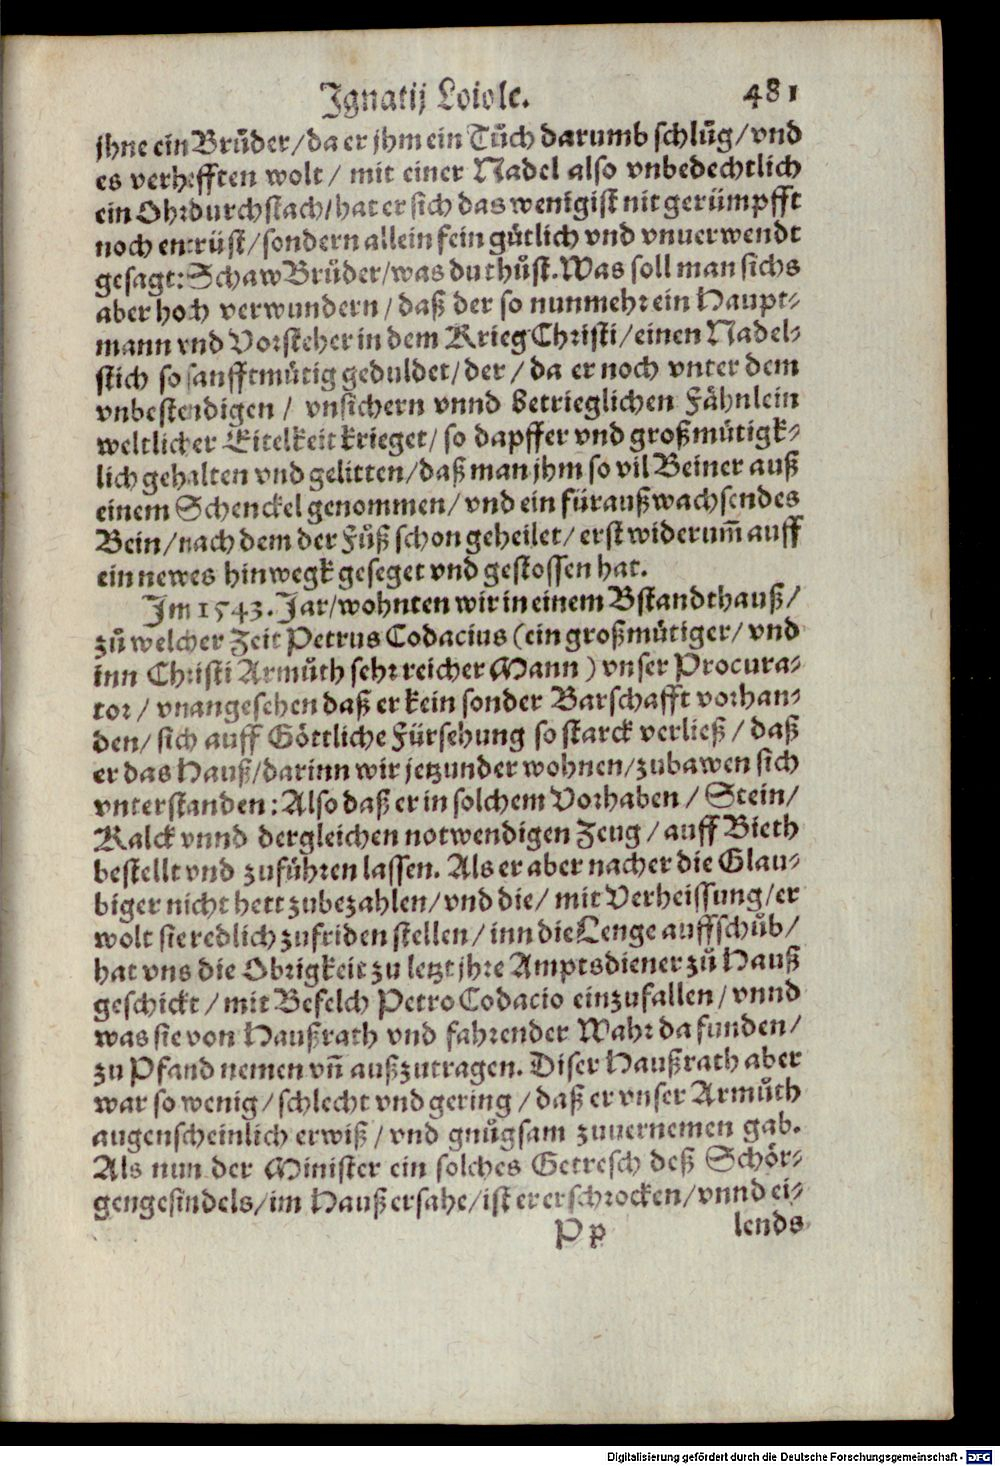 Ignatij Loiole. 481
jhne ein Brůder/ da er jhm ein Tůch darumb schlůg/ vnd
es verhefften wolt/ mit einer Nadel also vnbedechtlich
ein Ohr durchstach/ hat er sich das wenigist nit gerümpfft
noch entrüst/ sondern allein fein gůtlich vnd vnuerwendt
gesagt: Schaw Brůder/ was du thůst. Was soll man sichs
aber hoch verwundern/ daß der so nunmehr ein Haupt-
mann vnd Vorsteher in dem Krieg Christi/ einen Nadel-
stich so sanfftmütig geduldet/ der/ da er noch vnter dem
vnbestendigen/ vnsichern vnnd betrieglichen Fähnlein
weltlicher Eitelkeit krieget/ so dapffer vnd großmütigk-
lich gehalten vnd gelitten/ daß man jhm so vil Beiner auß
einem Schenckel genommen/ vnd ein fürauß wachsendes
Bein/ nach dem der Fůß schon geheilet/ erst widerum̃ auff
ein newes hinwegk geseget vnd gestossen hat.
Im 1543. Jar/ wohnten wir in einem Bstandthauß/
zů welcher Zeit Petrus Codacius (ein großmütiger/ vnd
inn Christi Armůth sehr reicher Mann) vnser Procura-
tor/ vnangesehen daß er kein sonder Barschafft vorhan-
den/ sich auff Göttliche Fürsehung so starck verließ/ daß
er das Hauß/ darinn wir jetzunder wohnen/ zubawen sich
vnterstanden: Also daß er in solchem Vorhaben/ Stein/
Kalck vnnd dergleichen notwendigen Zeug/ auff Bieth
bestellt vnd zuführen lassen. Als er aber nacher die Glau-
biger nicht hett zubezahlen/ vnd die/ mit Verheissung/ er
wolt sie redlich zufriden stellen/ inn die Lenge auffschůb/
hat vns die Obrigkeit zu letzt jhre Amptsdiener zů Hauß
geschickt/ mit Befelch Petro Codacio einzufallen/ vnnd
was sie von Haußrath vnd fahrender Wahr da funden/
zu Pfand nemen vñ außzutragen. Diser Haußrath aber
war so wenig/ schlecht vnd gering/ daß er vnser Armůth
augenscheinlich erwiß/ vnd gnůgsam zuuernemen gab.
Als nun der Minister ein solches Getresch deß Schör-
gengesindels/ im Hauß ersahe/ ist er erschrocken/ vnnd ei-
Pp lends
Digitalisierung gefördert durch die Deutsche Forschungsgemeinschaft - DFG